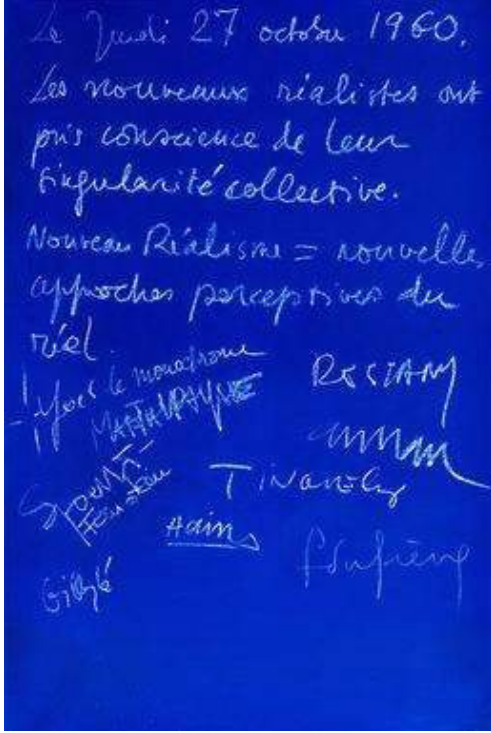 Le Jeudi 27 octobre 1960.
Les nouveaux réalistes ont
pris conscience de leur
singularité collective.
Nouveau Réalisme = nouvelles
approches perceptives du
réel.
Yves le monochrome
RESTANY
Spoerri
Tinguely
Hains